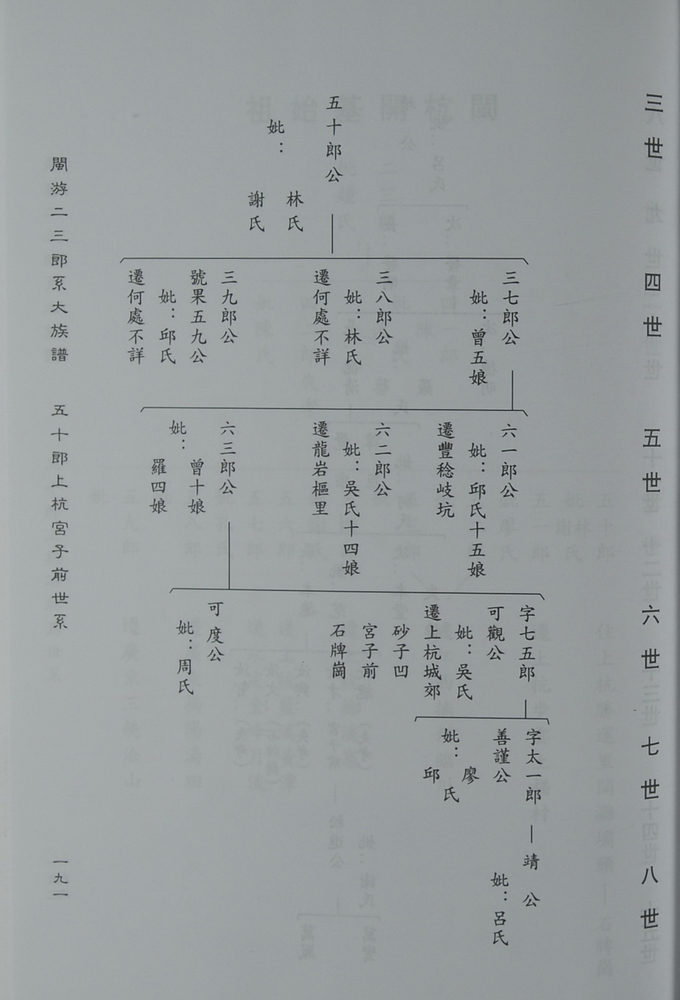 三世
四世
五世
六世
七世
八世
五十郎公
妣：
林氏
謝氏
三七郎公
妣：曾五娘
三八郎公
妣：林氏
遷何處不詳
三九郎公
號果五九公
妣：邱氏
遷何處不詳
六一郎公
妣：邱氏十五娘
遷豐稔岐坑
六二郎公
妣：吳氏十四娘
遷龍岩樞里
六三郎公
妣：
曾十娘
羅四娘
字七五郎
可觀公
妣：吳氏
遷上杭城郊
砂子凹
宮子前
石牌崗
可度公
妣：周氏
字太一郎
善謹公
妣：
廖
邱
氏
靖公
妣：呂氏
閩游二三郎系大族譜
五十郎上杭宮子前世系
一九一